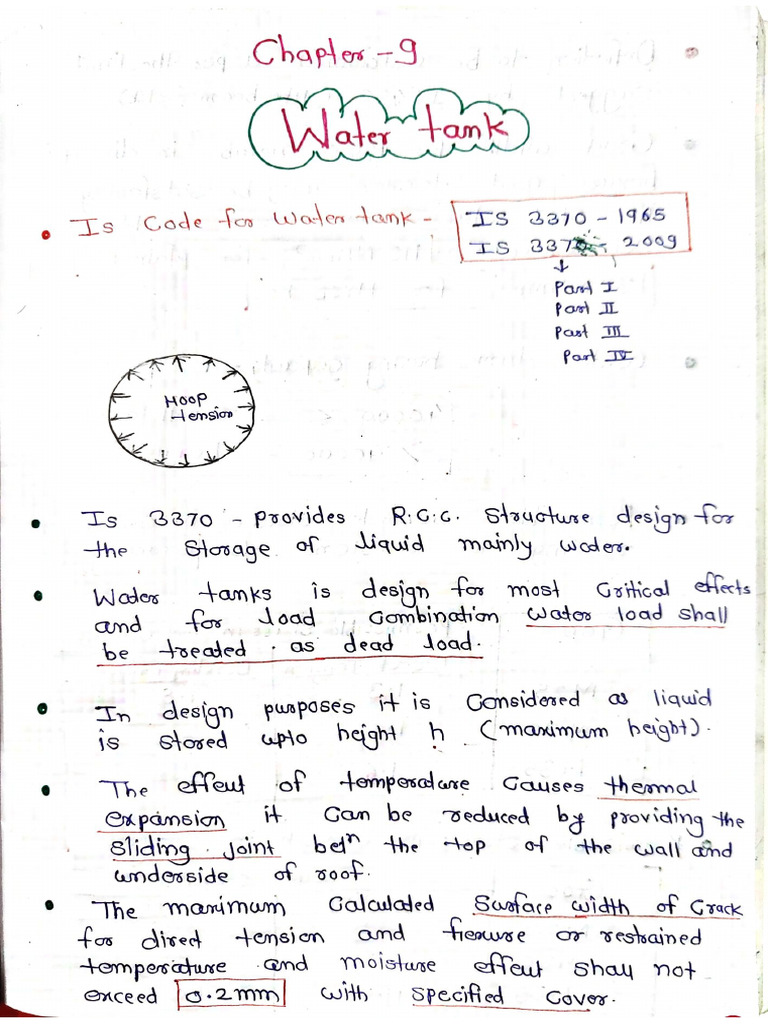 Chapter - 9
Water tank
• Is Code for Water tank - IS 3370 - 1965
IS 3370 - 2009
↓
Part I
Part II
Part III
Part IV
Hoop
tension
• Is 3370 - provides R.C.C. Structure design for
the Storage of liquid mainly water.
• Water tanks is design for most Critical effects
and for load Combination water load shall
be treated as dead load.
• In design purposes it is Considered as liquid
is stored upto height h (maximum height).
• The effect of temperature Causes thermal
expansion it Can be reduced by providing the
Sliding joint betⁿ the top of the wall and
underside of roof.
• The maximum Calculated Surface width of Crack
for direct tension and flexure or restrained
temperature and moisture effect shall not
exceed 0.2mm with specified Cover.